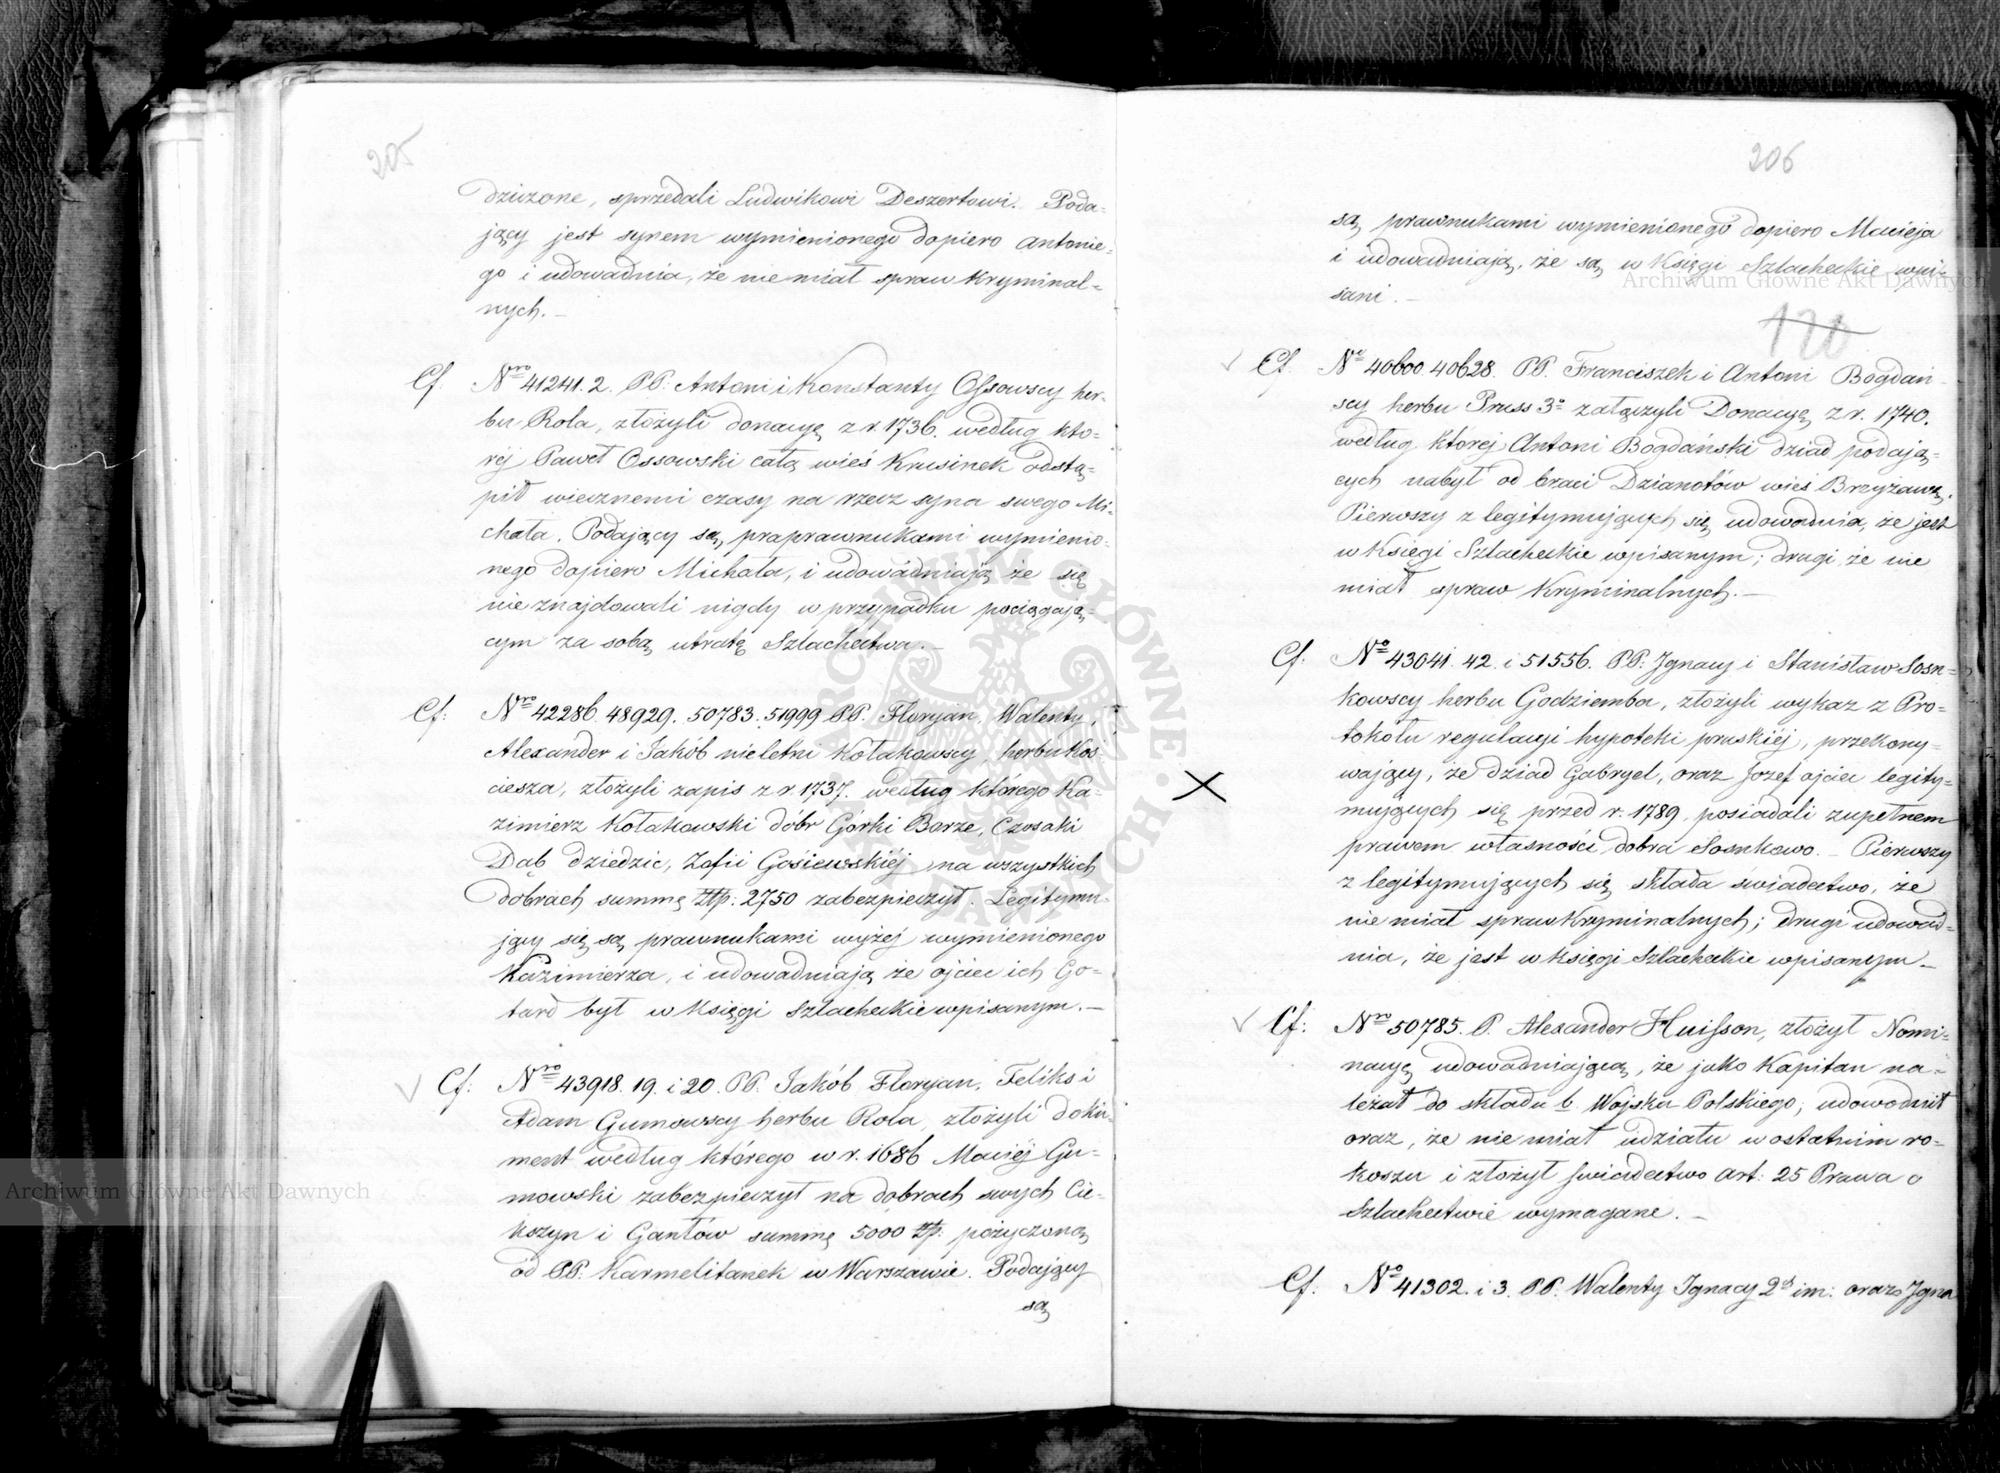 205
dziczone, sprzedali Ludwikowi Deszertowi. Poda-
jący jest synem wymienionego dopiero Antonie-
go i udowadnia, że nie miał spraw Kryminal-
nych.—
Cf. Nro 41241. 2. PP. Antoni i Konstanty Ossowscy her-
bu Rola, złożyli donacyę z r. 1736. według któ-
rej Paweł Ossowski całą wieś Krusinek odstą-
pił wiecznemi czasy na rzecz syna swego Mi-
chała. Podający są praprawnukami wymienio-
nego dopiero Michała, i udowadniają że się
nie znajdowali nigdy w przypadku pociągają-
cym za sobą utratę Szlachectwa.—
Cf: Nro 42286. 48929. 50783. 51999 PP. Floryan, Walenty,
Alexander i Jakób nieletni Kołakowscy, herbu Koś
ciesza, złożyli zapis z r. 1737. według którego Ka-
zimierz Kołakowski dóbr Górki Barze, Czosaki
Dąb dziedzic, Zofii Gosiewskiej na wszystkich
dobrach summę złp: 2750 zabezpieczył. Legitymu-
jący się są prawnukami wyżej wymienionego
Kazimierza, i udowadniają że ojciec ich Go-
tard był w Księgi Szlacheckie wpisanym.—
Cf: Nro 43918. 19. i 20. PP. Jakób Floryan, Feliks i
Adam Gumowscy herbu Rola, złożyli doku-
ment według którego w r. 1686 Maciej Gu-
mowski zabezpieczył na dobrach swych Cie-
kszyn i Gantów summę 5000 złp. pożyczoną
od PP. Karmelitanek w Warszawie. Podający
są
206
są prawnukami wymienionego dopiero Macieja
i udowadniają, że są w Księgi Szlacheckie wpi-
sani.—
120
Cf. No 40600 40628. PP. Franciszek i Antoni Bogdań-
scy herbu Pruss 3o załączyli Donacyę z r. 1740.
według której Antoni Bogdański dziad podają-
cych nabył od braci Dzianotów wieś Brzyzawę.
Pierwszy z legitymujących się udowadnia, że jest
w Księgi Szlacheckie wpisanym; drugi, że nie
miał spraw Kryminalnych.—
Cf. No 43041. 42. i 51556. PP. Ignacy i Stanisław Sosn-
kowscy herbu Godziemba, złożyli wykaz z Pro-
tokółu regulacyi hypoteki pruskiej, przekony-
wający, że dziad Gabryel, oraz Józef ojciec legity-
mujących się przed r. 1789. posiadali zupełnem
prawem własności dobra Sosnkowo.— Pierwszy
z legitymujących się składa świadectwo, że
nie miał spraw Kryminalnych; drugi udowad-
nia, że jest w księgi Szlacheckie wpisanym—
Cf: Nro 50785. P. Alexander Huisson, złożył Nomi-
nacyę udowadniającą, że jako Kapitan na-
leżał do składu b. Wojska Polskiego; udowodnił
oraz, że nie miał udziału w ostatnim ro-
koszu i złożył świadectwo art: 25 Prawa o
Szlachectwie wymagane.—
Cf: No 41302. i 3. PP. Walenty Ignacy 2ch im: oraz Igna
Archiwum Główne Akt Dawnych
Archiwum Główne Akt Dawnych
ARCHIWUM GŁÓWNE AKT DAWNYCH